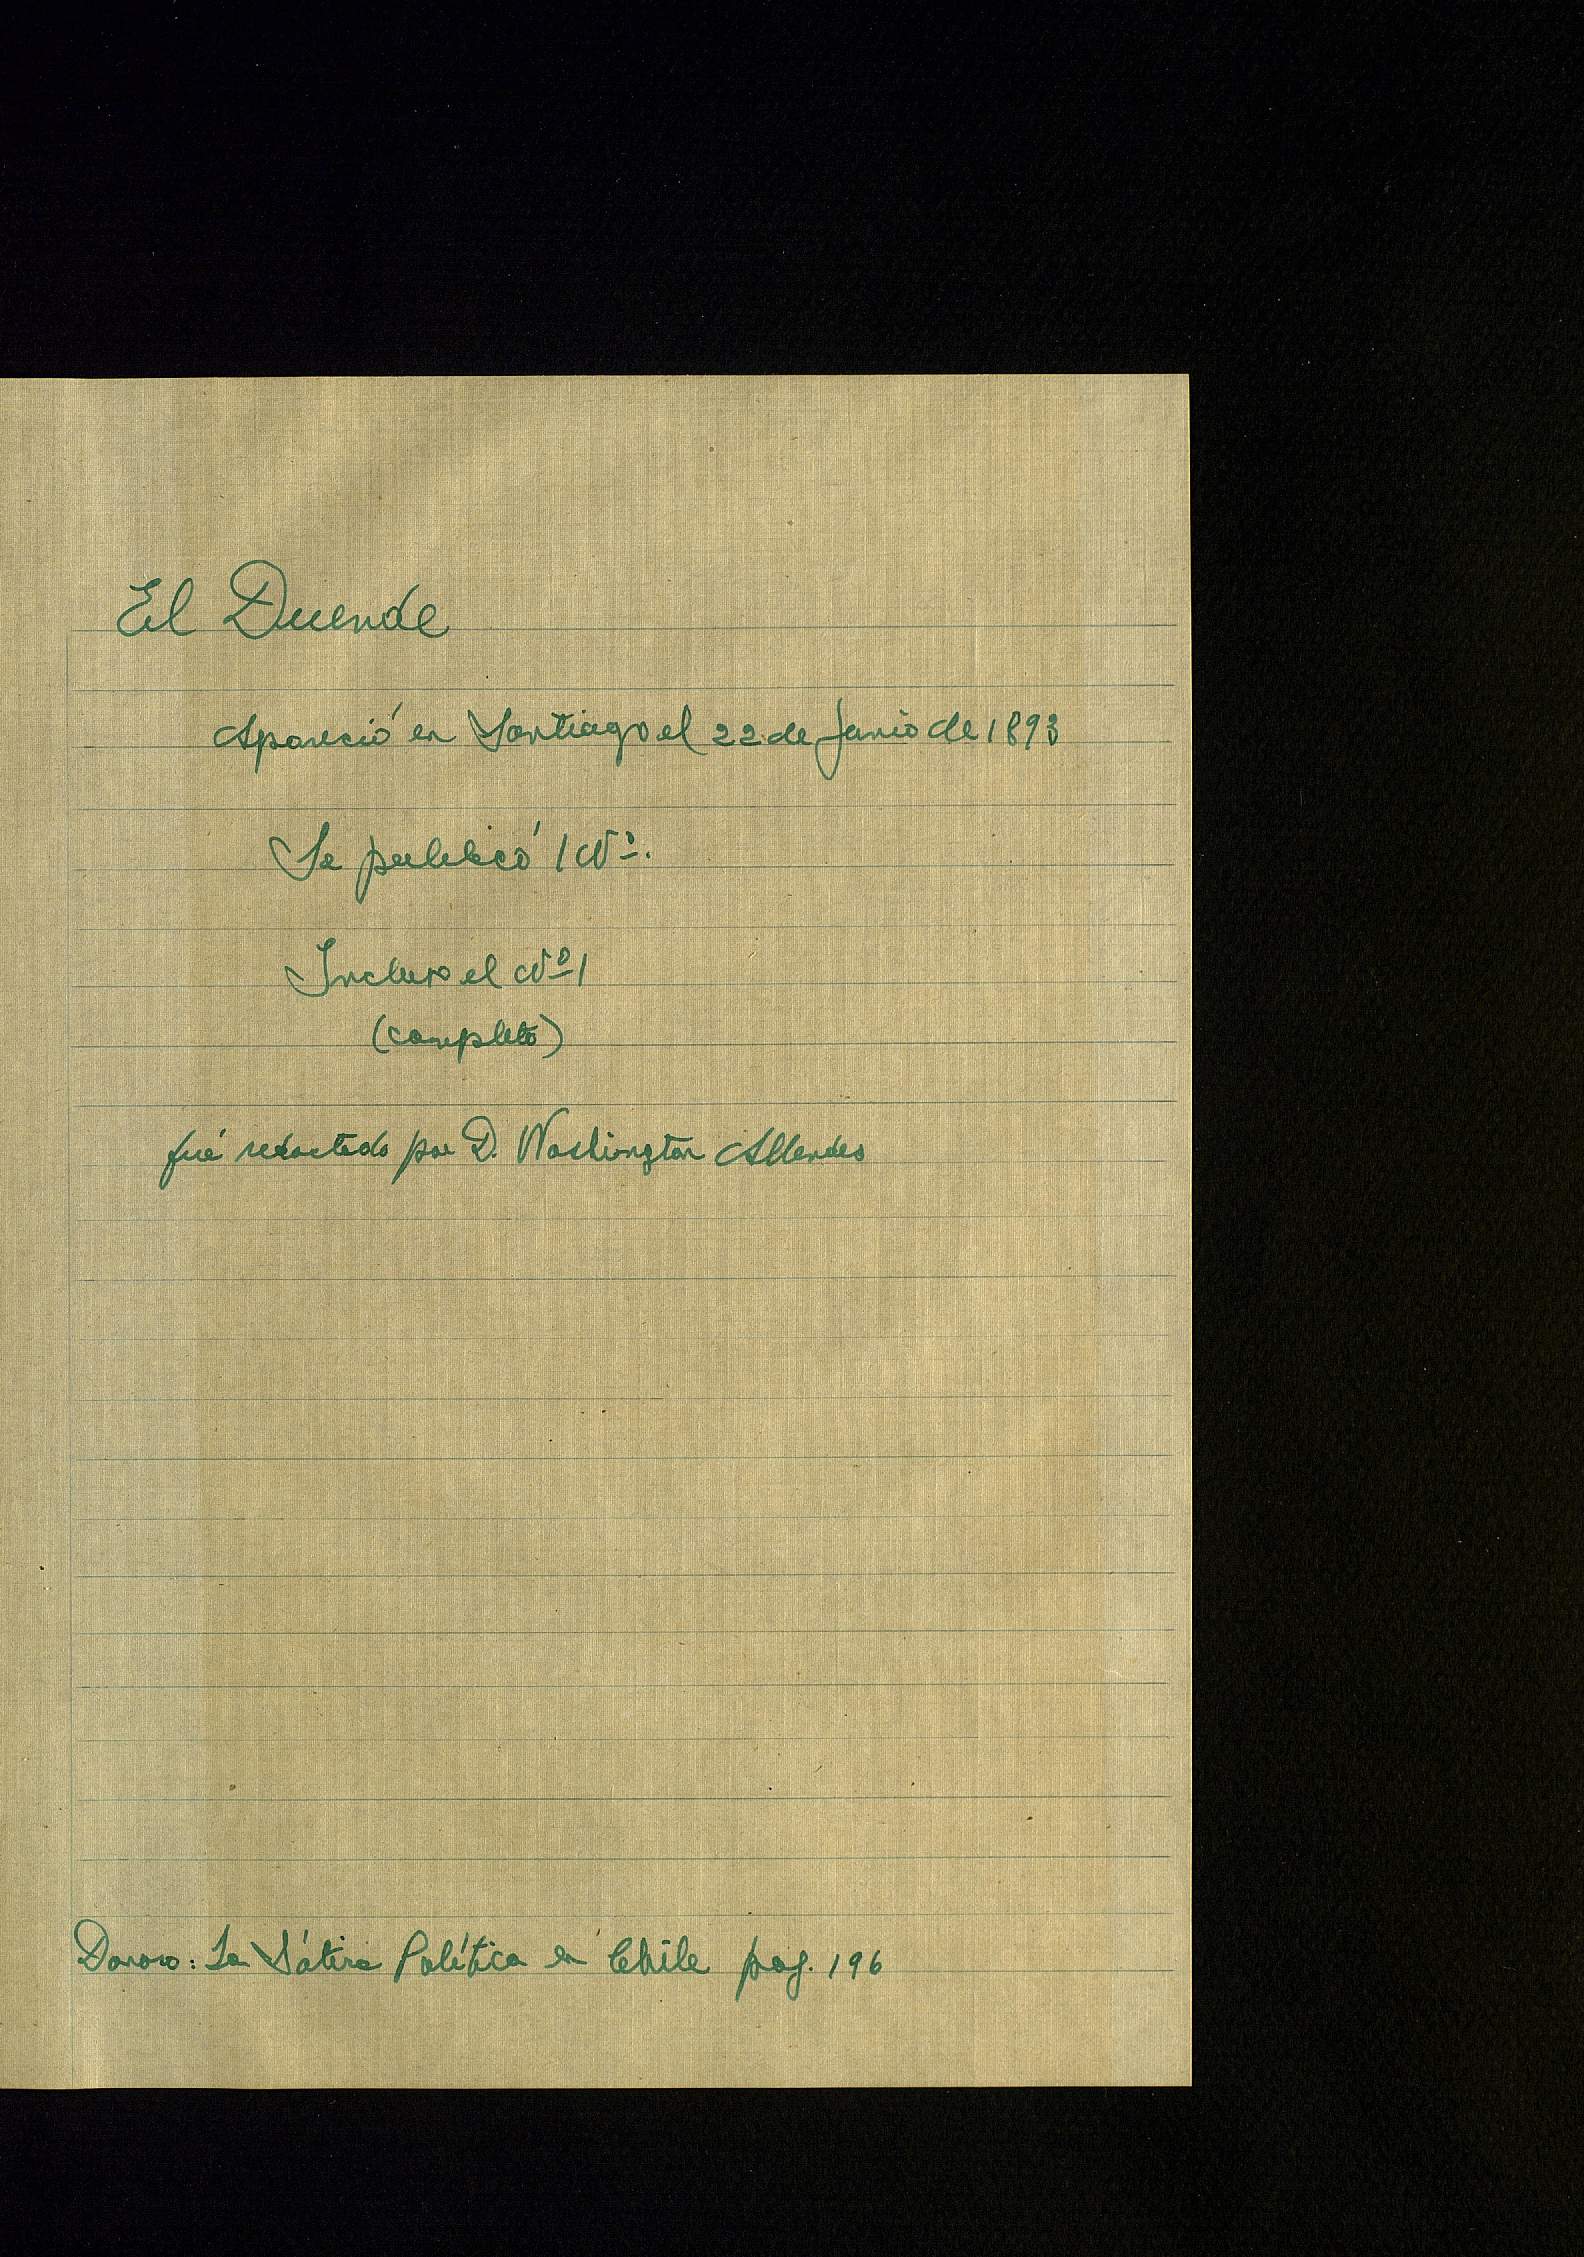 El Duende
Apareció en Santiago el 22 de Junio de 1893
Se publicó 1 Nº.
Incluso el Nº 1
(completo)
fué redactado por D. Washington Allendes
Donoso: La Sátira Política en Chile pag. 196